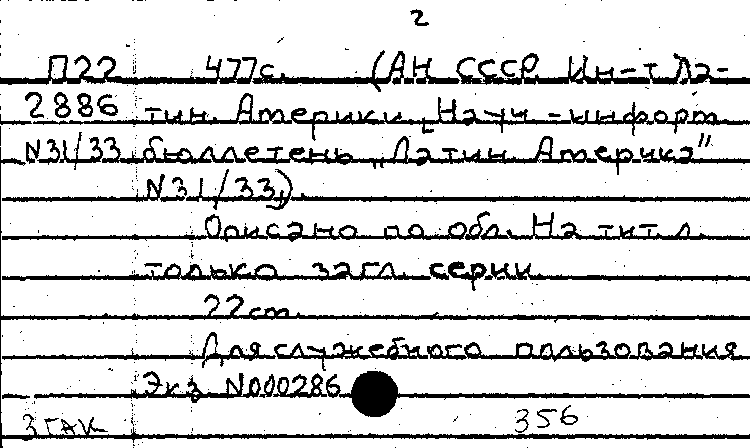 2
П22 477с. (АН СССР. Ин-т Ла-
2886 тин. Америки. Науч.-информ.
N31/33 бюллетень „Латин. Америка"
N31/33).
Описано по обл. На тит. л.
только загл. серии.
22 cm.
Для служебного пользования
Экз N000286
3 ГАК 356